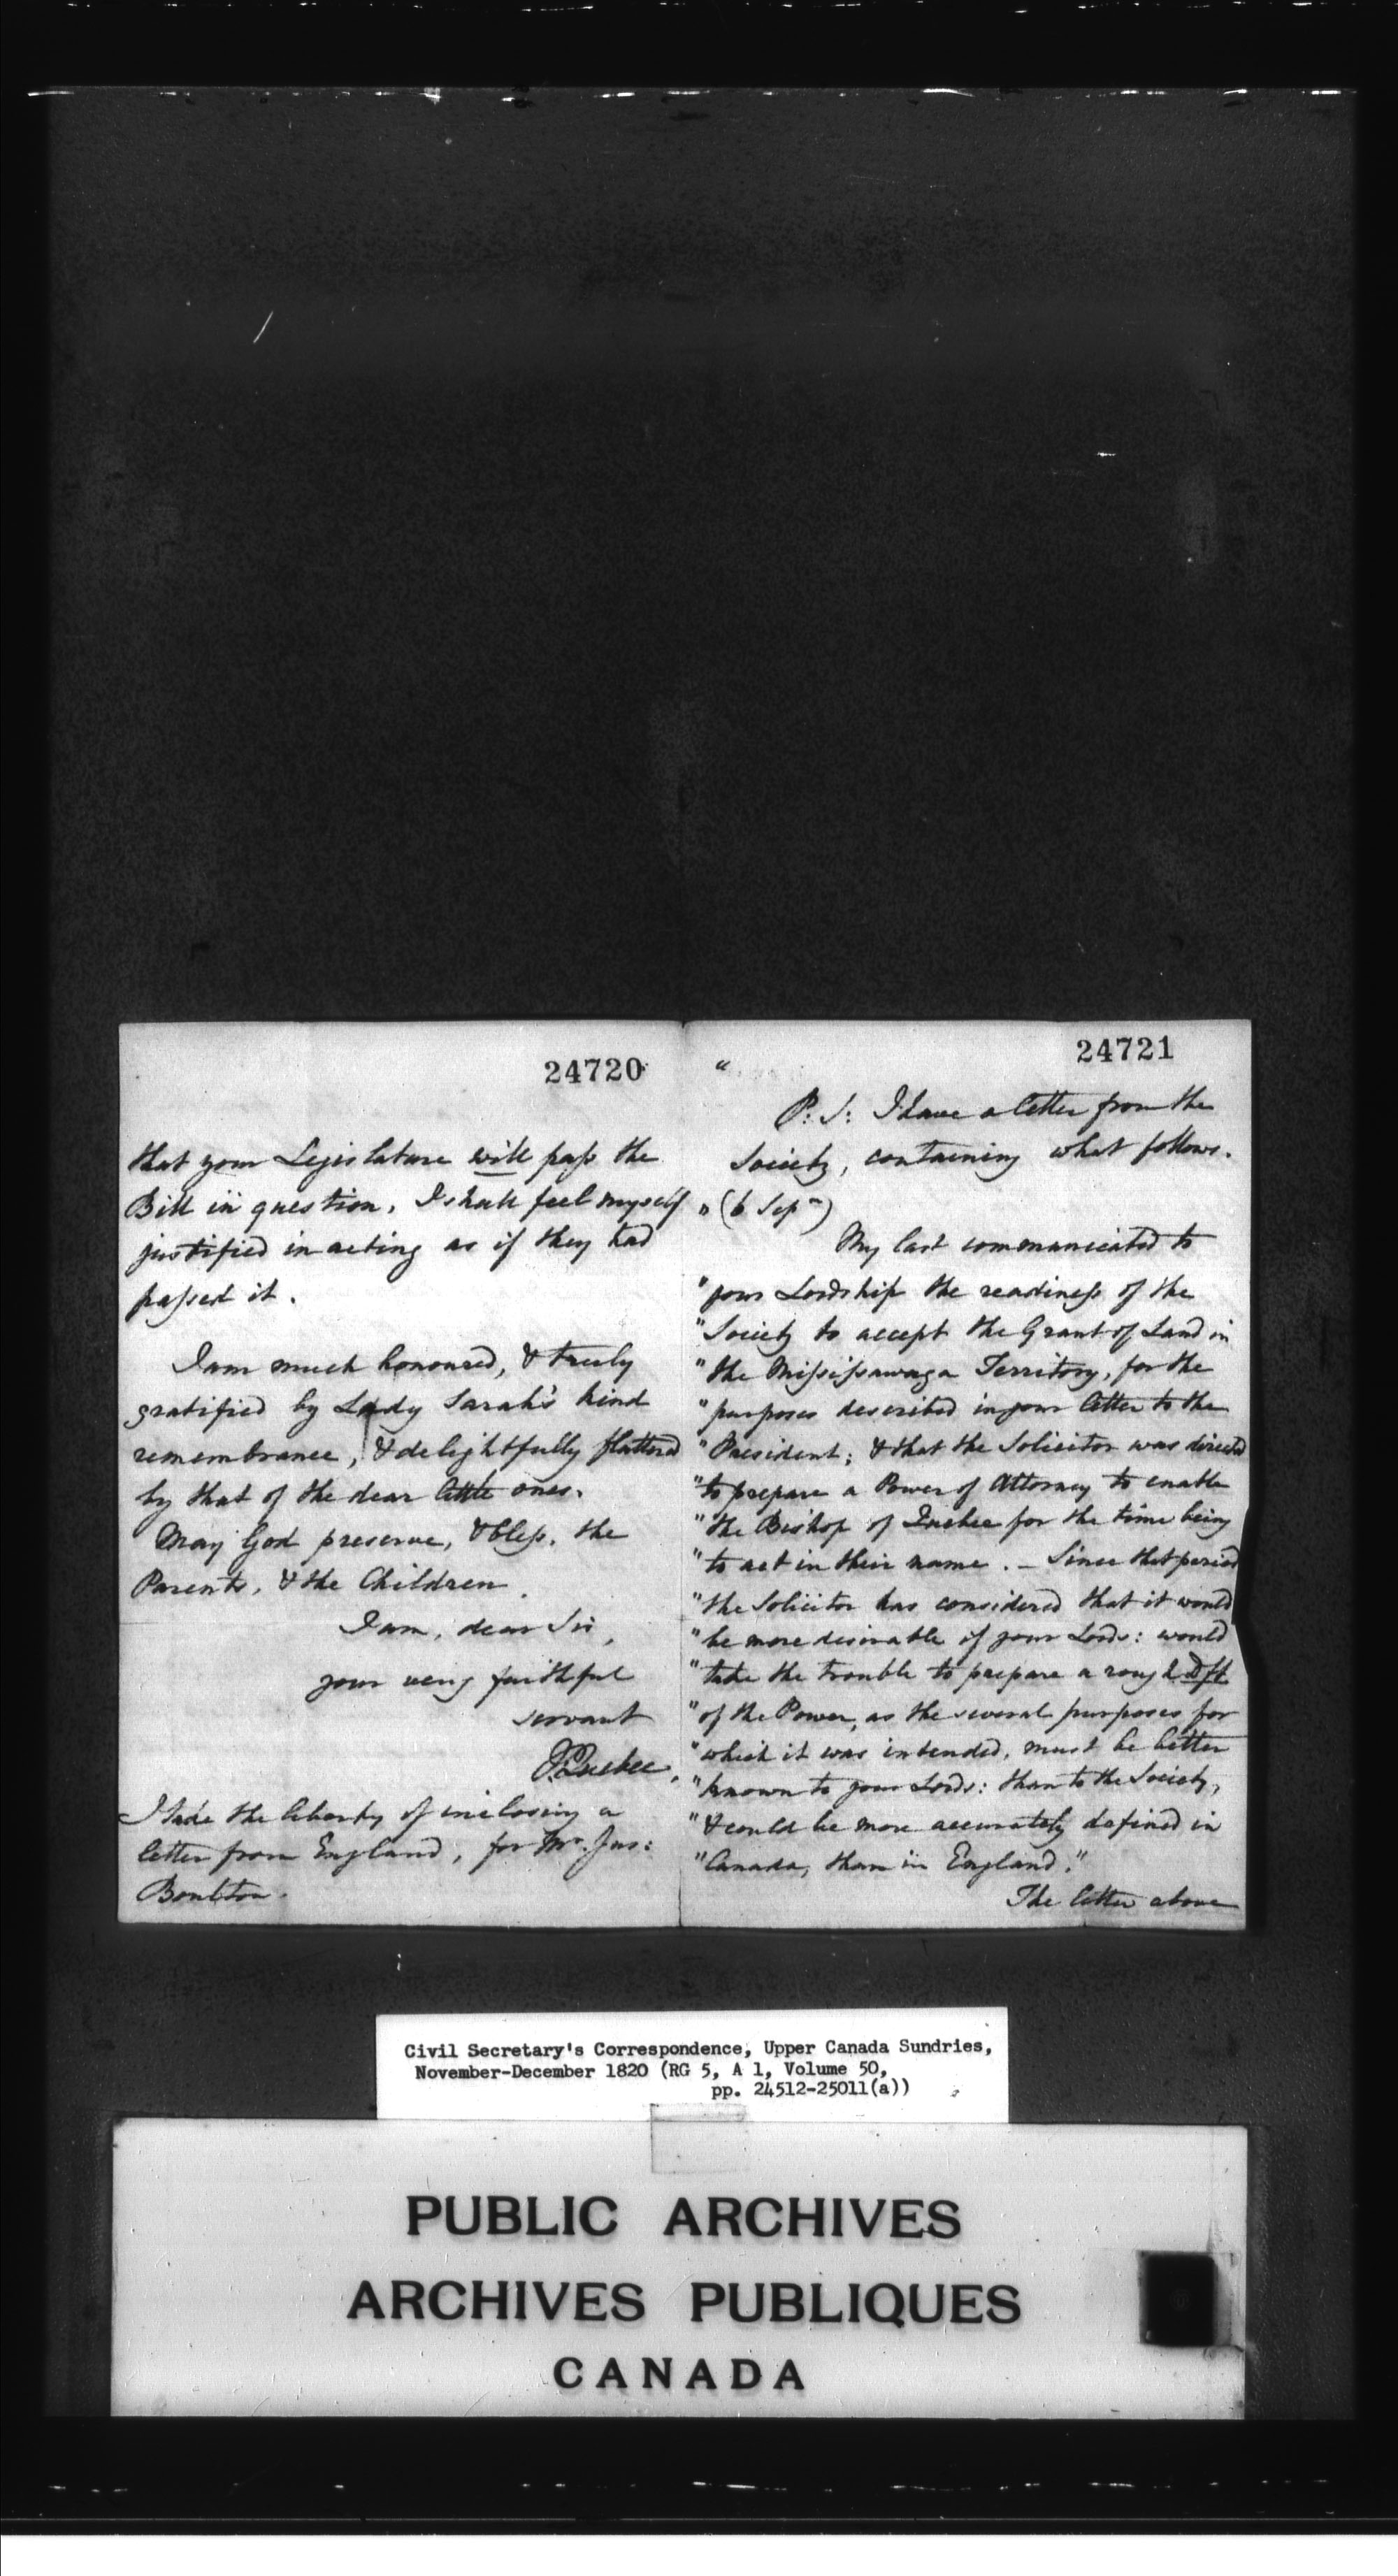 24720
that your Legislature will pass the
Bill in question, I shall feel myself
justified in acting as if they had
passed it.
I am much honoured, & truly
gratified by Lady Sarah's kind
remembrance, & delightfully flattered
by that of the dear little ones.
May God preserve, & bless, the
Parents, & the Children.
I am, dear Sir,
your very faithful
servant
J. Quebec.
I take the liberty of inclosing a
letter from England, for Mr. Jus:
Boulton.
24721
"
P: S: I have a letter from the
Society, containing what follows.
" (6 Sepr)
My last communicated to
"your Lordship the readiness of the
"Society to accept the Grant of Land in
"the Missisawaga Territory, for the
"purposes described in your letter to the
"President; & that the Solicitor was directed
"to prepare a Power of Attorney to enable
"the Bishop of Quebec for the time being
"to act in their name. – Since that period
"the Solicitor has considered that it would
"be more desirable if your Lords: would
"take the trouble to prepare a rough Dft
"of the Power, as the several purposes for
"which it was intended, must be better
"known to your Lords: than to the Society,
"& could be more accurately defined in
"Canada, than in England."
The letter above
Civil Secretary's Correspondence, Upper Canada Sundries,
November-December 1820 (RG 5, A 1, Volume 50,
pp. 24512-25011(a))
PUBLIC ARCHIVES
ARCHIVES PUBLIQUES
CANADA